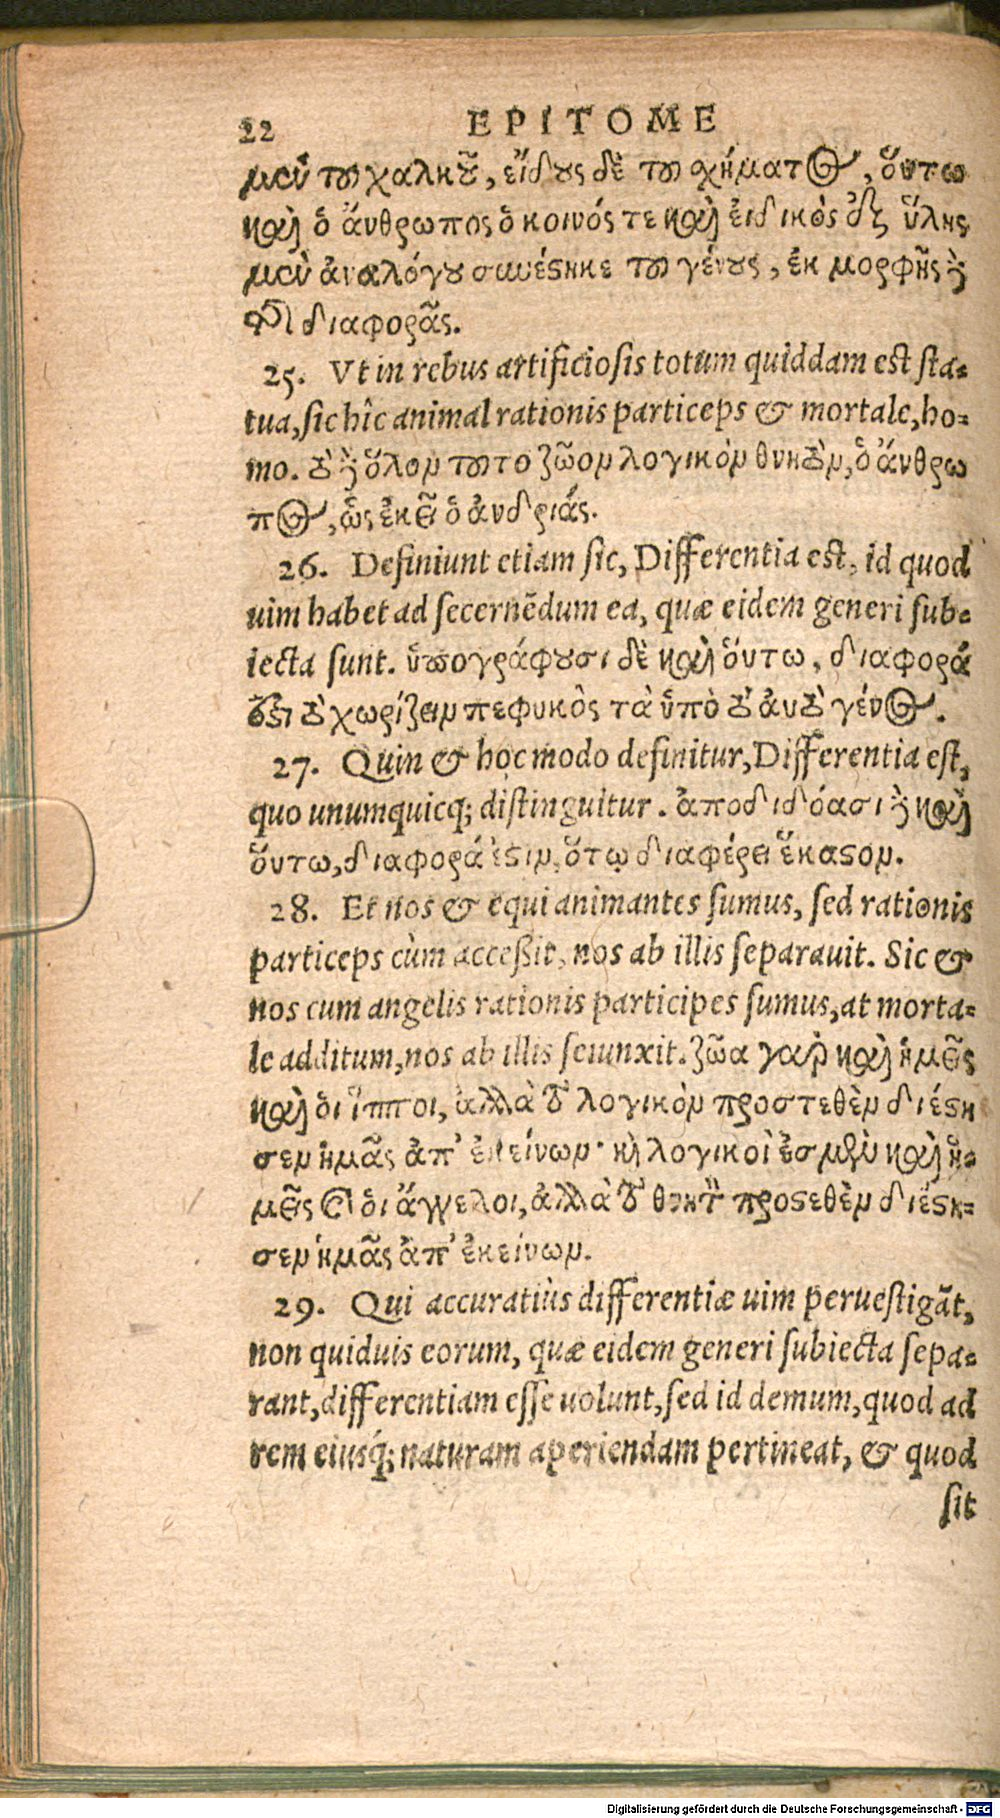 22 EPITOME
μὲν τοῦ χαλκοῦ, εἴδους δὲ τοῦ σχήματος, ὅυτω
καὶ ὁ ἄνθρωπος ὁ κοινός τε καὶ ἐιδικὸς ἐξ ὕλης
μὲν ἀναλόγου συνέστηκε τοῦ γένους, ἐκ μορφῆς δὲ
τῆς διαφορᾶς.
25. Vt in rebus artificiosis totum quiddam est sta-
tua, sic hîc animal rationis particeps & mortale, ho-
mo. τὸ δὲ ὅλον τοῦτο ζῶον λογικὸν θνητὸν, ὁ ἄνθρω
πος, ὡς ἐκεῖ ὁ ἀνδριάς.
26. Definiunt etiam sic, Differentia est, id quod
uim habet ad secernēdum ea, quæ eidem generi sub-
iecta sunt. ὑπογράφουσι δὲ καὶ ὅυτω, διαφορά
ἐστι τὸ χωρίζειν πεφυκὸς τὰ ὑπὸ τὸ ἀυτὸ γένος.
27. Quin & hoc modo definitur, Differentia est,
quo unumquicq; distinguitur. ἀποδιδόασι δὲ καὶ
ὅυτω, διαφορά ἐστιν, ὅτῳ διαφέρει ἕκαστον.
28. Et nos & equi animantes sumus, sed rationis
particeps cùm accessit, nos ab illis separauit. Sic &
nos cum angelis rationis participes sumus, at morta-
le additum, nos ab illis seiunxit. ζῶα γαρ καὶ ἡμεῖς
καὶ ὁι ἵπποι, ἀλλὰ τὸ λογικὸν προστεθὲν διέστη
σεν ἡμᾶς ἀπ' ἐκείνων· καὶ λογικοὶ ἐσμὲν καὶ ἡ-
μεῖς καὶ ὁι ἄγγελοι, ἀλλὰ τὸ θνητὸν προστεθὲν διέστη-
σεν ἡμᾶς ἀπ' ἐκείνων.
29. Qui accuratiùs differentiæ uim peruestigāt,
non quiduis eorum, quæ eidem generi subiecta sepa-
rant, differentiam esse uolunt, sed id demum, quod ad
rem eiusq́; naturam aperiendam pertineat, & quod
sit
Digitalisierung gefördert durch die Deutsche Forschungsgemeinschaft - DFG